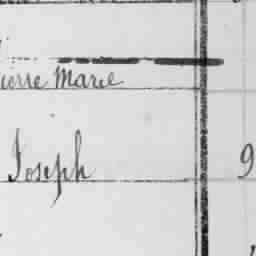 ierre Marie
Joseph 9